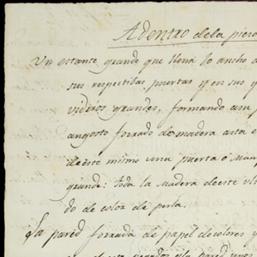 Adentro dela pieza
Un estante grande que llena lo ancho d
sus respectibas puertas y en sus y
vidrios grandes, formando un p
angosto forrado de madera asta e
deeste mismo una puerta ó
grande: toda la madera deeste es
do de color de perla.
La pared forrada de papel decolores y